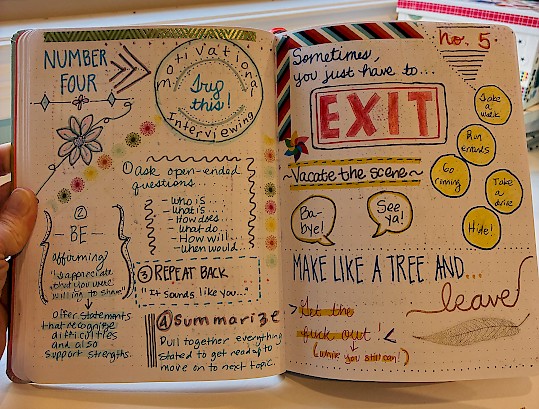 NUMBER
FOUR
Motivational
Try
this!
Interviewing
① ask open-ended
questions...
- Who is...
- What is...
- How does
- What do...
- How will...
- when would
②
BE
affirming
"I appreciate
that you were
willing to share"
Offer statements
that recognize
difficulties
and also
support strengths.
③ REPEAT BACK
"It sounds like you..."
④ Summarize
Pull together everything
stated to get ready to
move on to next topic.
no. 5
Sometimes,
you just have to...
EXIT
~Vacate the scene~
Ba-
bye!
See
ya!
Take
a
walk
Run
errands
Go
Take
a
drive
Hide!
MAKE LIKE A TREE AND...
leave
Get the
fuck out!
(while you still can!)